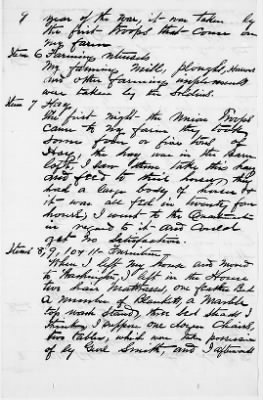 9 year of the war, it was taken by
the first troops that came on
my farm
Item 6 Farming utensils
My farming mill, ploughs, Harrows
and other farming implements
was taken by the Soldiers.
Item 7 Hay,
The first night the Union Troops
came to my farm they took
some four or five tons of
Hay, the hay was in the barn
loft, I saw them take this hay
and feed to their horses, they
had a large body of horses &
it was all fed in twenty four
hours, I went to the Quarter
in regard to it and could
get no Satisfaction.
Items 8, 9, 10 & 11 Furniture
When I left my house and moved
to Washington, I left in the House
two hair Mattresses, one feather Bed
A number of Blankets, a Marble
top wash Stand, three bed Steads I
think, I suppose one dozen Chairs,
two tables, which were taken possession
of by Genl Smith, and I afterwards